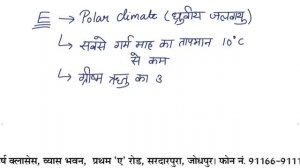 E → Polar climate (ध्रुवीय जलवायु)
→ सबसे गर्म माह का तापमान 10°C
से कम
→ ग्रीष्म ऋतु का
र्ष क्लासेस, व्यास भवन, प्रथम 'ए' रोड, सरदारपुरा, जोधपुर। फोन नं. 91166-9111